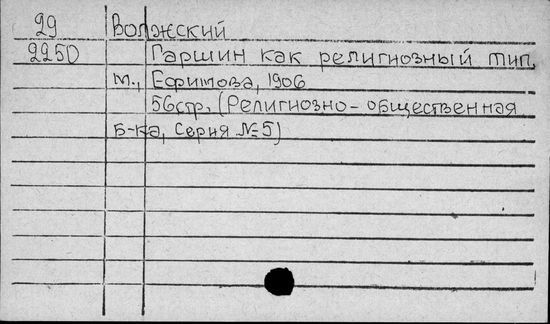 29 Волжский
2250 Гаршин как религиозный тип.
М., Ефимова, 1906
56стр. (Религиозно-общественная
б-ка, Серия №5)